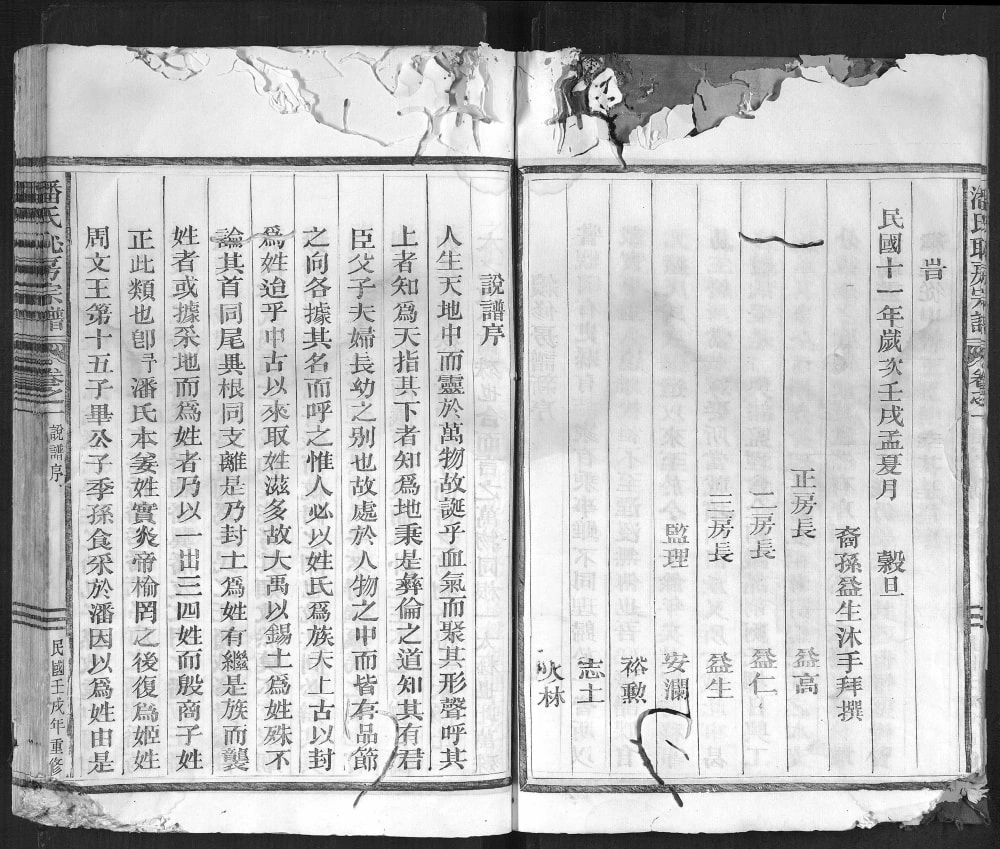 民國十一年歲次壬戌孟夏月 穀旦
裔孫益生沐手拜撰
正房長 益高
二房長 益仁
三房長 益生
監理 安瀾
裕勲
志士
火林
說譜序
人生天地中而靈於萬物故誕乎血氣而聚其形聲呼其
上者知為天指其下者知為地秉是彝倫之道知其有君
臣父子夫婦長幼之別也故處於人物之中而皆有品節
之向各據其名而呼之惟人必以姓氏為族夫上古以封
為姓迨乎中古以來取姓滋多故大禹以錫土為姓殊不
論其首同尾異根同支離是乃封土為姓有繼是族而襲
姓者或據采地而為姓者乃以一出三四姓而殷商子姓
正此類也卽予潘氏本姜姓實炎帝榆罔之後復為姬姓
周文王第十五子畢公子季孫食采於潘因以為姓由是
潘氏 房宗譜 卷之一 說譜序 民國壬戌年重修